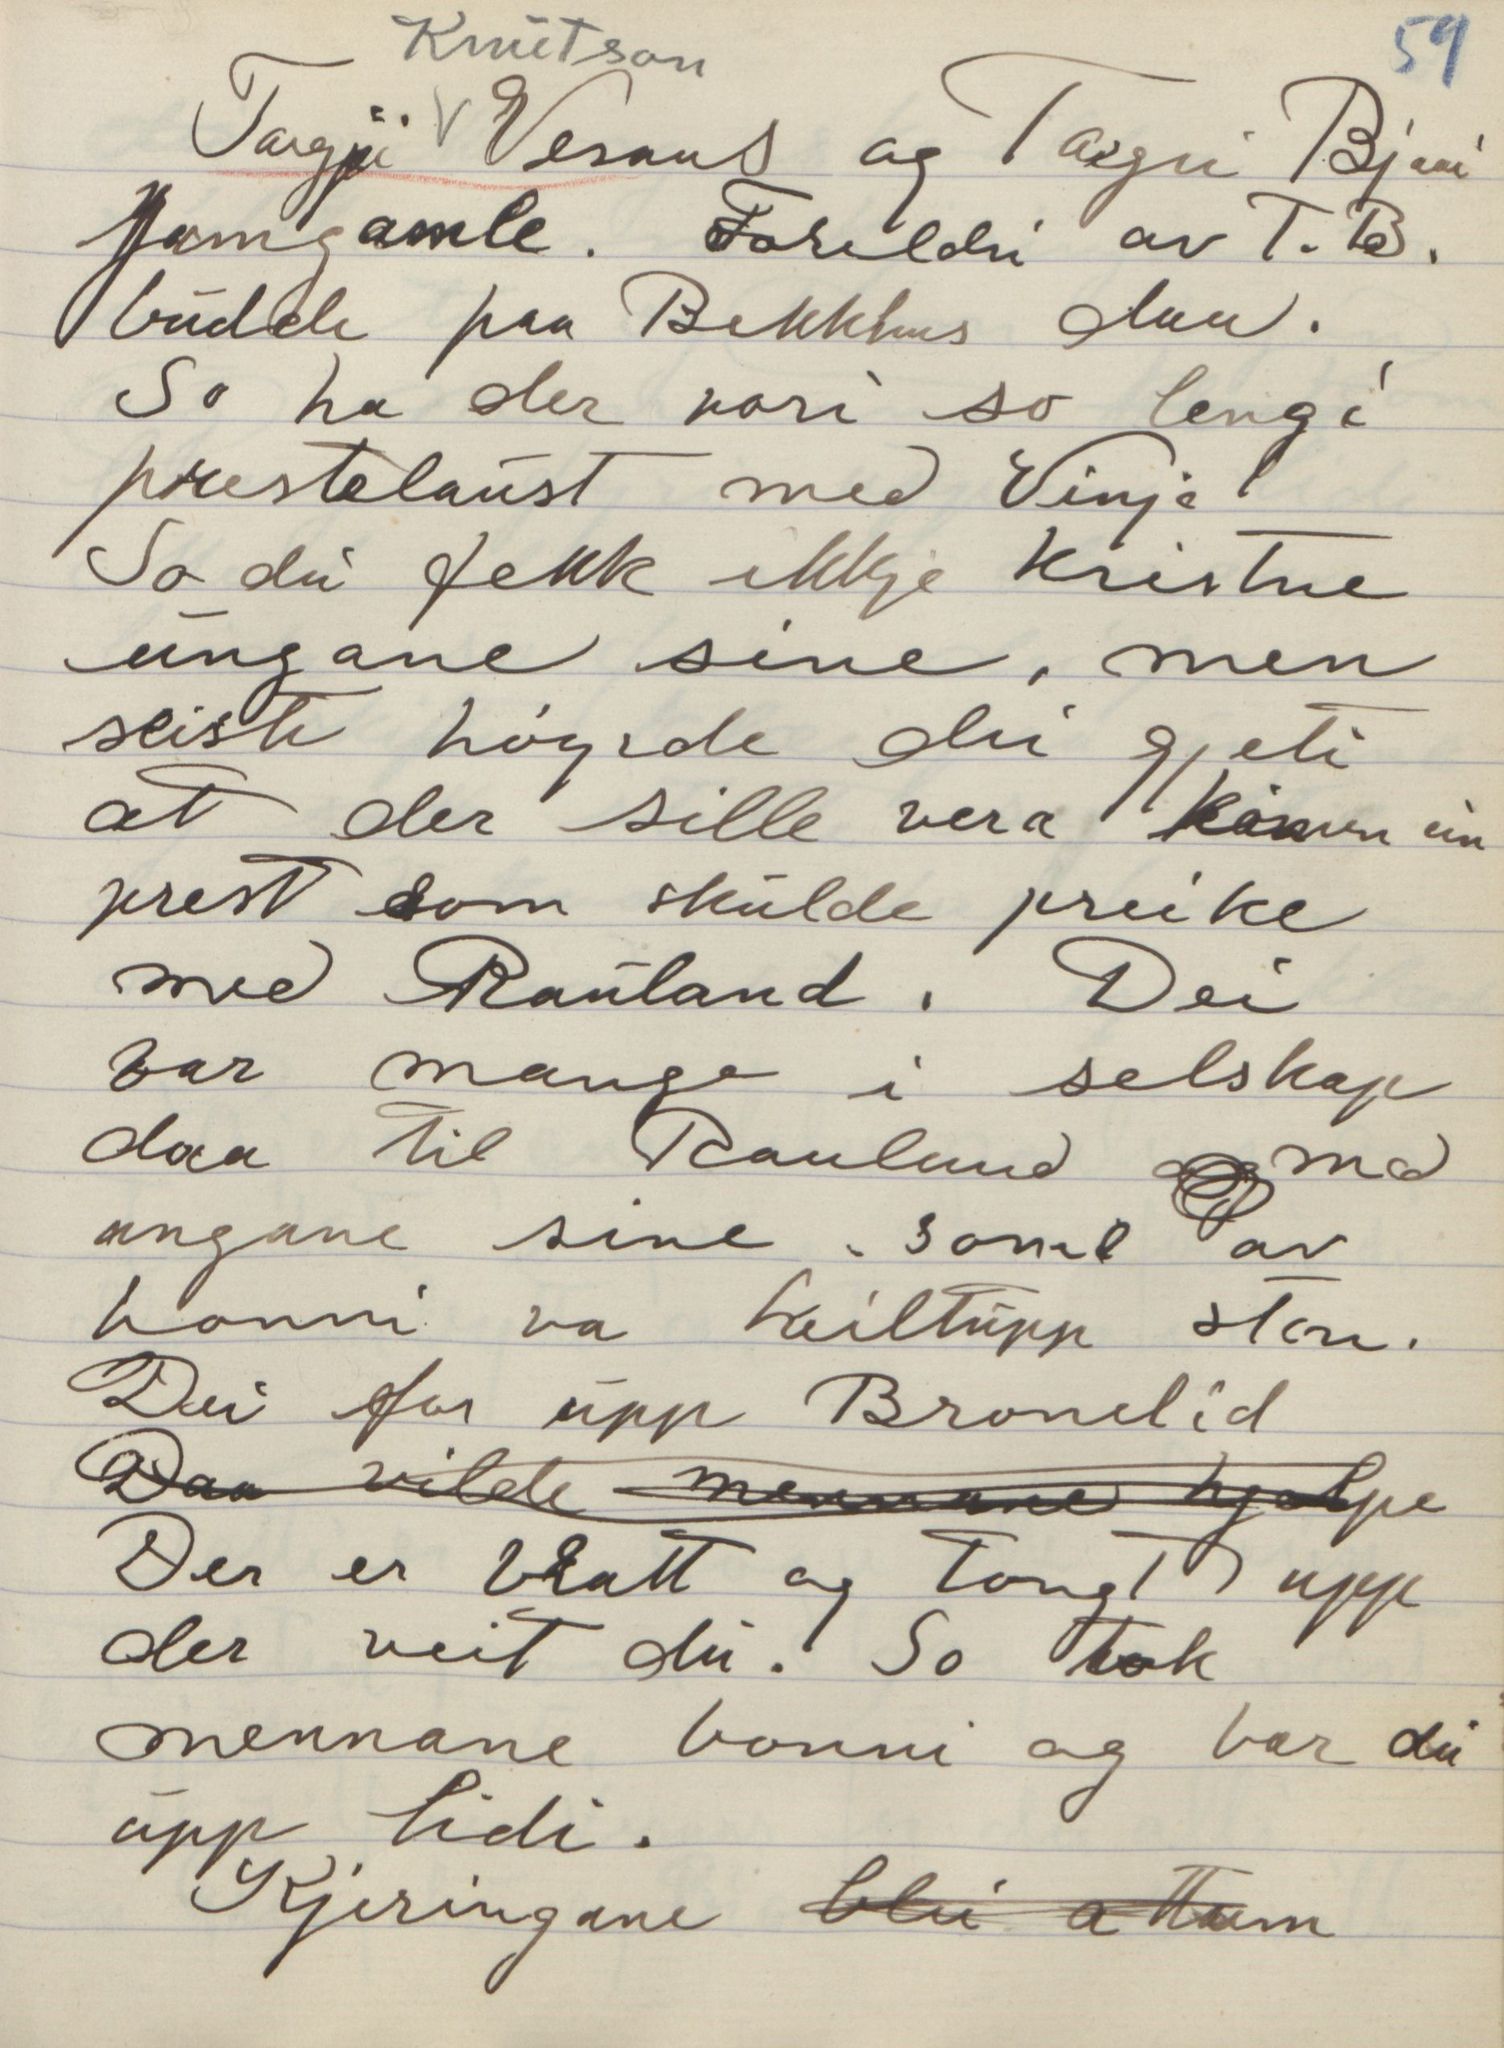 59
Knutson
Targjei Vesaas og Targei Bjaai
jamgamle. Foreldri av T.B.
budde paa Bekkhus daa.
So ha der vori so lengi
prestelaust med Vinje
So dei fekk ikkje kristne
ungane sine, men
seiste høyrde dei gjeti
at der sille vera komen ein
prest som skulde preike
med Rauland. Dei
var mange i selskap
daa til Rauland med
ungane sine. Some av
bonni va heiltupp stor.
Dei for upp Bronelid
Daa vilde mennane hjelpe
Der er bratt og tongt upp
der veit du. So tok
mennane bonni og bar dei
upp lidi.
Kjeringane blei attum